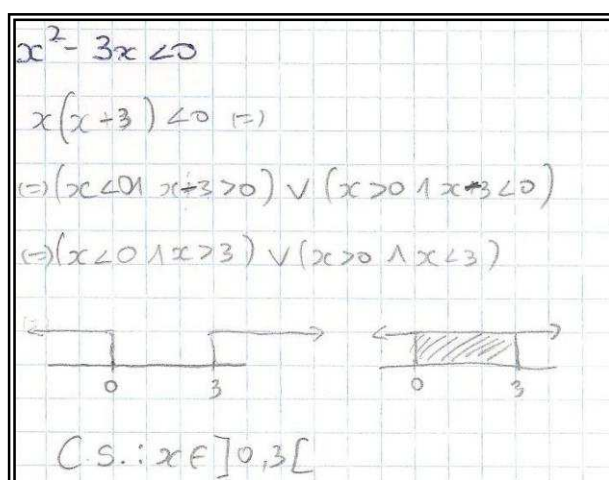 x² - 3x < 0
x(x-3) < 0 (=)
(=) (x<0 ∧ x-3>0) ∨ (x>0 ∧ x-3<0)
(=) (x<0 ∧ x>3) ∨ (x>0 ∧ x<3)
0 3 0 3
C.S.: x ∈ ]0,3[